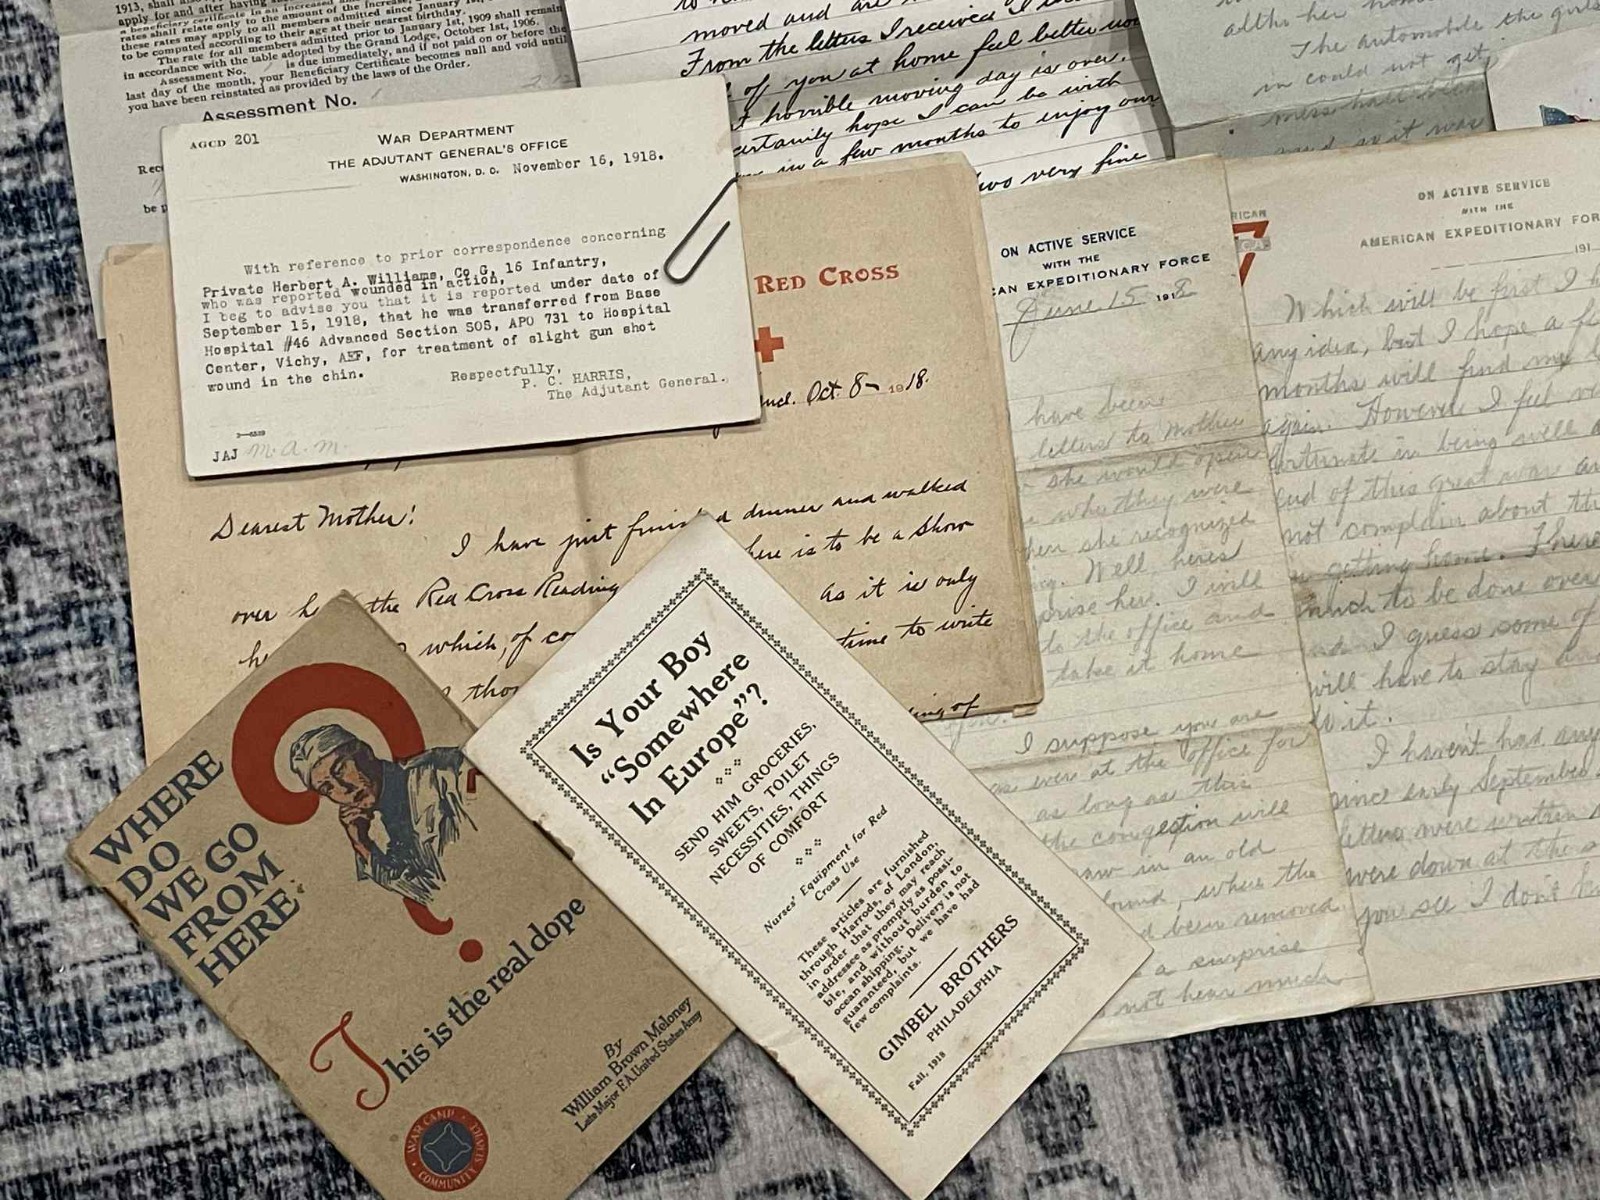 1913, shall also
apply for and after having
a beneficiary certificate in an increased
rates shall relate only to the amount of the increase,
these rates may apply to all members admitted since January 1st,
to be computed according to their age at their nearest birthday.
The rate for all members admitted prior to January 1st, 1909 shall remain
in accordance with the table adopted by the Grand Lodge, October 1st, 1906.
Assessment No. is due immediately, and if not paid on or before the
last day of the month, your Beneficiary Certificate becomes null and void until
you have been reinstated as provided by the laws of the Order.
Assessment No.
Rec
be p
moved and are
From the letters I received I
of you at home feel better now
horrible moving day is over.
certainly hope I can be with
in a few months to enjoy our
two very fine
The automobile the girls
in could not get
mess hall
and so it was
AGCD 201
WAR DEPARTMENT
THE ADJUTANT GENERAL'S OFFICE
WASHINGTON, D. C. November 16, 1918.
With reference to prior correspondence concerning
Private Herbert A. Williams, Co G, 16 Infantry,
who was reported wounded in action,
I beg to advise you that it is reported under date of
September 15, 1918, that he was transferred from Base
Hospital #46 Advanced Section SOS, APO 731 to Hospital
Center, Vichy, AEF, for treatment of slight gun shot
wound in the chin.
Respectfully,
P. C. HARRIS,
The Adjutant General.
3—6539
JAJ M.A.M.
RED CROSS
Oct. 8— 1918.
Dearest Mother!
I have just finished dinner and walked
over the Red Cross Reading here is to be a show
which, of co as it is only
time to write
tho
ing of
ON ACTIVE SERVICE
WITH THE
AN EXPEDITIONARY FORCE
June 15 1918
have been
letters to Mother
she would open
who they were
when she recognized
ing. Well heres
prise her. I will
to the office and
take it home
I suppose you are
as ever at the office for
as long as this
the congestion will
saw in an old
found, where the
been removed
a surprise
not hear much
RICAN
ON ACTIVE SERVICE
WITH THE
AMERICAN EXPEDITIONARY FOR
191
Which will be first I h
any idea, but I hope a fe
months will find me
again. However I feel ve
fortunate in being well a
end of this great war an
not complain about th
getting home. There
much to be done over
I guess some of
will have to stay and
do it.
I haven't had any
since early September
letters were written
were down at the s
you see I don't h
WHERE
DO
WE GO
FROM
HERE
?
This is the real dope
By
William Brown Meloney
Late Major F.A. United States Army
WAR CAMP COMMUNITY SERVICE
Is Your Boy
"Somewhere
In Europe"?
SEND HIM GROCERIES,
SWEETS, TOILET
NECESSITIES, THINGS
OF COMFORT
Nurses' Equipment for Red
Cross Use
These articles are furnished
through Harrods, of London,
in order that they may reach
addressee as promptly as possi-
ble, and without burden to
ocean shipping. Delivery is not
guaranteed, but we have had
few complaints.
GIMBEL BROTHERS
PHILADELPHIA
Fall, 1918